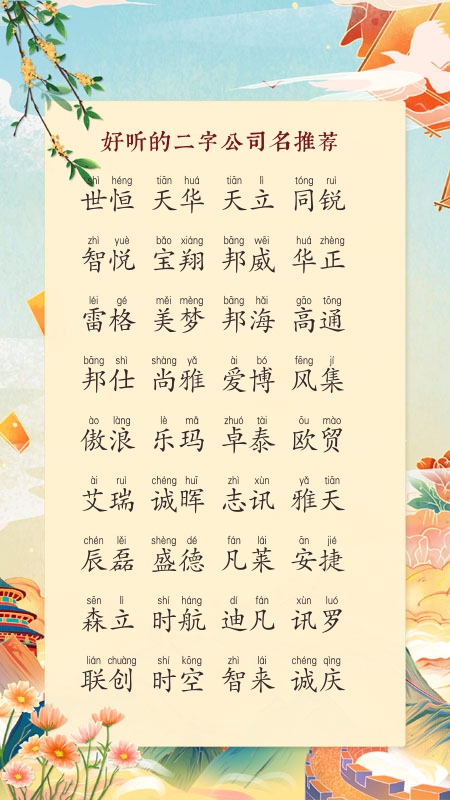 好听的二字公司名推荐
shì héng tiān huá tiān lì tóng ruì
世恒 天华 天立 同锐
zhì yuè bǎo xiáng bāng wēi huá zhèng
智悦 宝翔 邦威 华正
léi gé měi mèng bāng hǎi gāo tōng
雷格 美梦 邦海 高通
bāng shì shàng yǎ ài bó fēng jí
邦仕 尚雅 爱博 风集
ào làng lè mǎ zhuó tài ōu mào
傲浪 乐玛 卓泰 欧贸
ài ruì chéng huī zhì xùn yǎ tiān
艾瑞 诚晖 志讯 雅天
chén lěi shèng dé fán lái ān jié
辰磊 盛德 凡莱 安捷
sēn lì shí háng dí fán xùn luó
森立 时航 迪凡 讯罗
lián chuàng shí kōng zhì lái chéng qìng
联创 时空 智来 诚庆